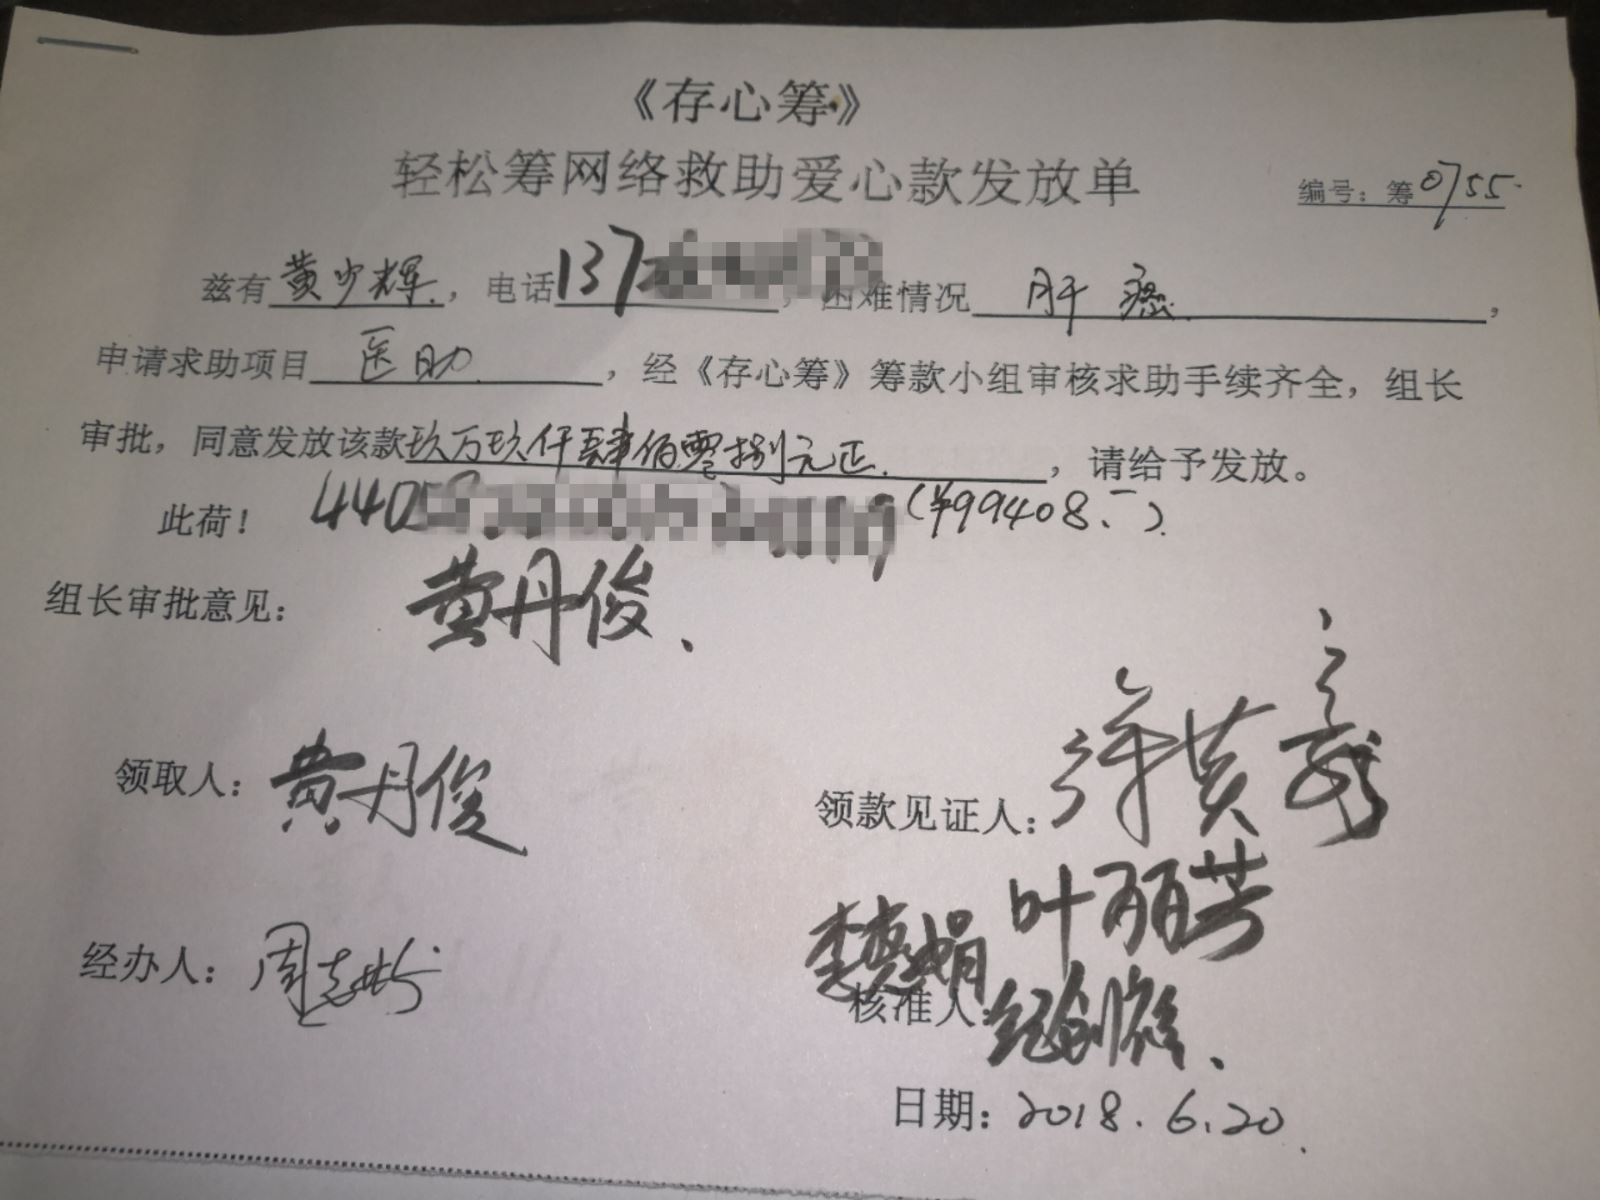 《存心筹》
轻松筹网络救助爱心款发放单
编号：筹0755
兹有黄少辉，电话137，困难情况肝癌，
申请求助项目医助，经《存心筹》筹款小组审核求助手续齐全，组长
审批，同意发放该款玖万玖仟肆佰零捌元正，请给予发放。
此荷！ 440 9(¥99408.一)
组长审批意见：黄丹俊
领取人：黄丹俊
领款见证人：
叶丽芳
经办人：
核准人：纪创雄
日期：2018.6.20